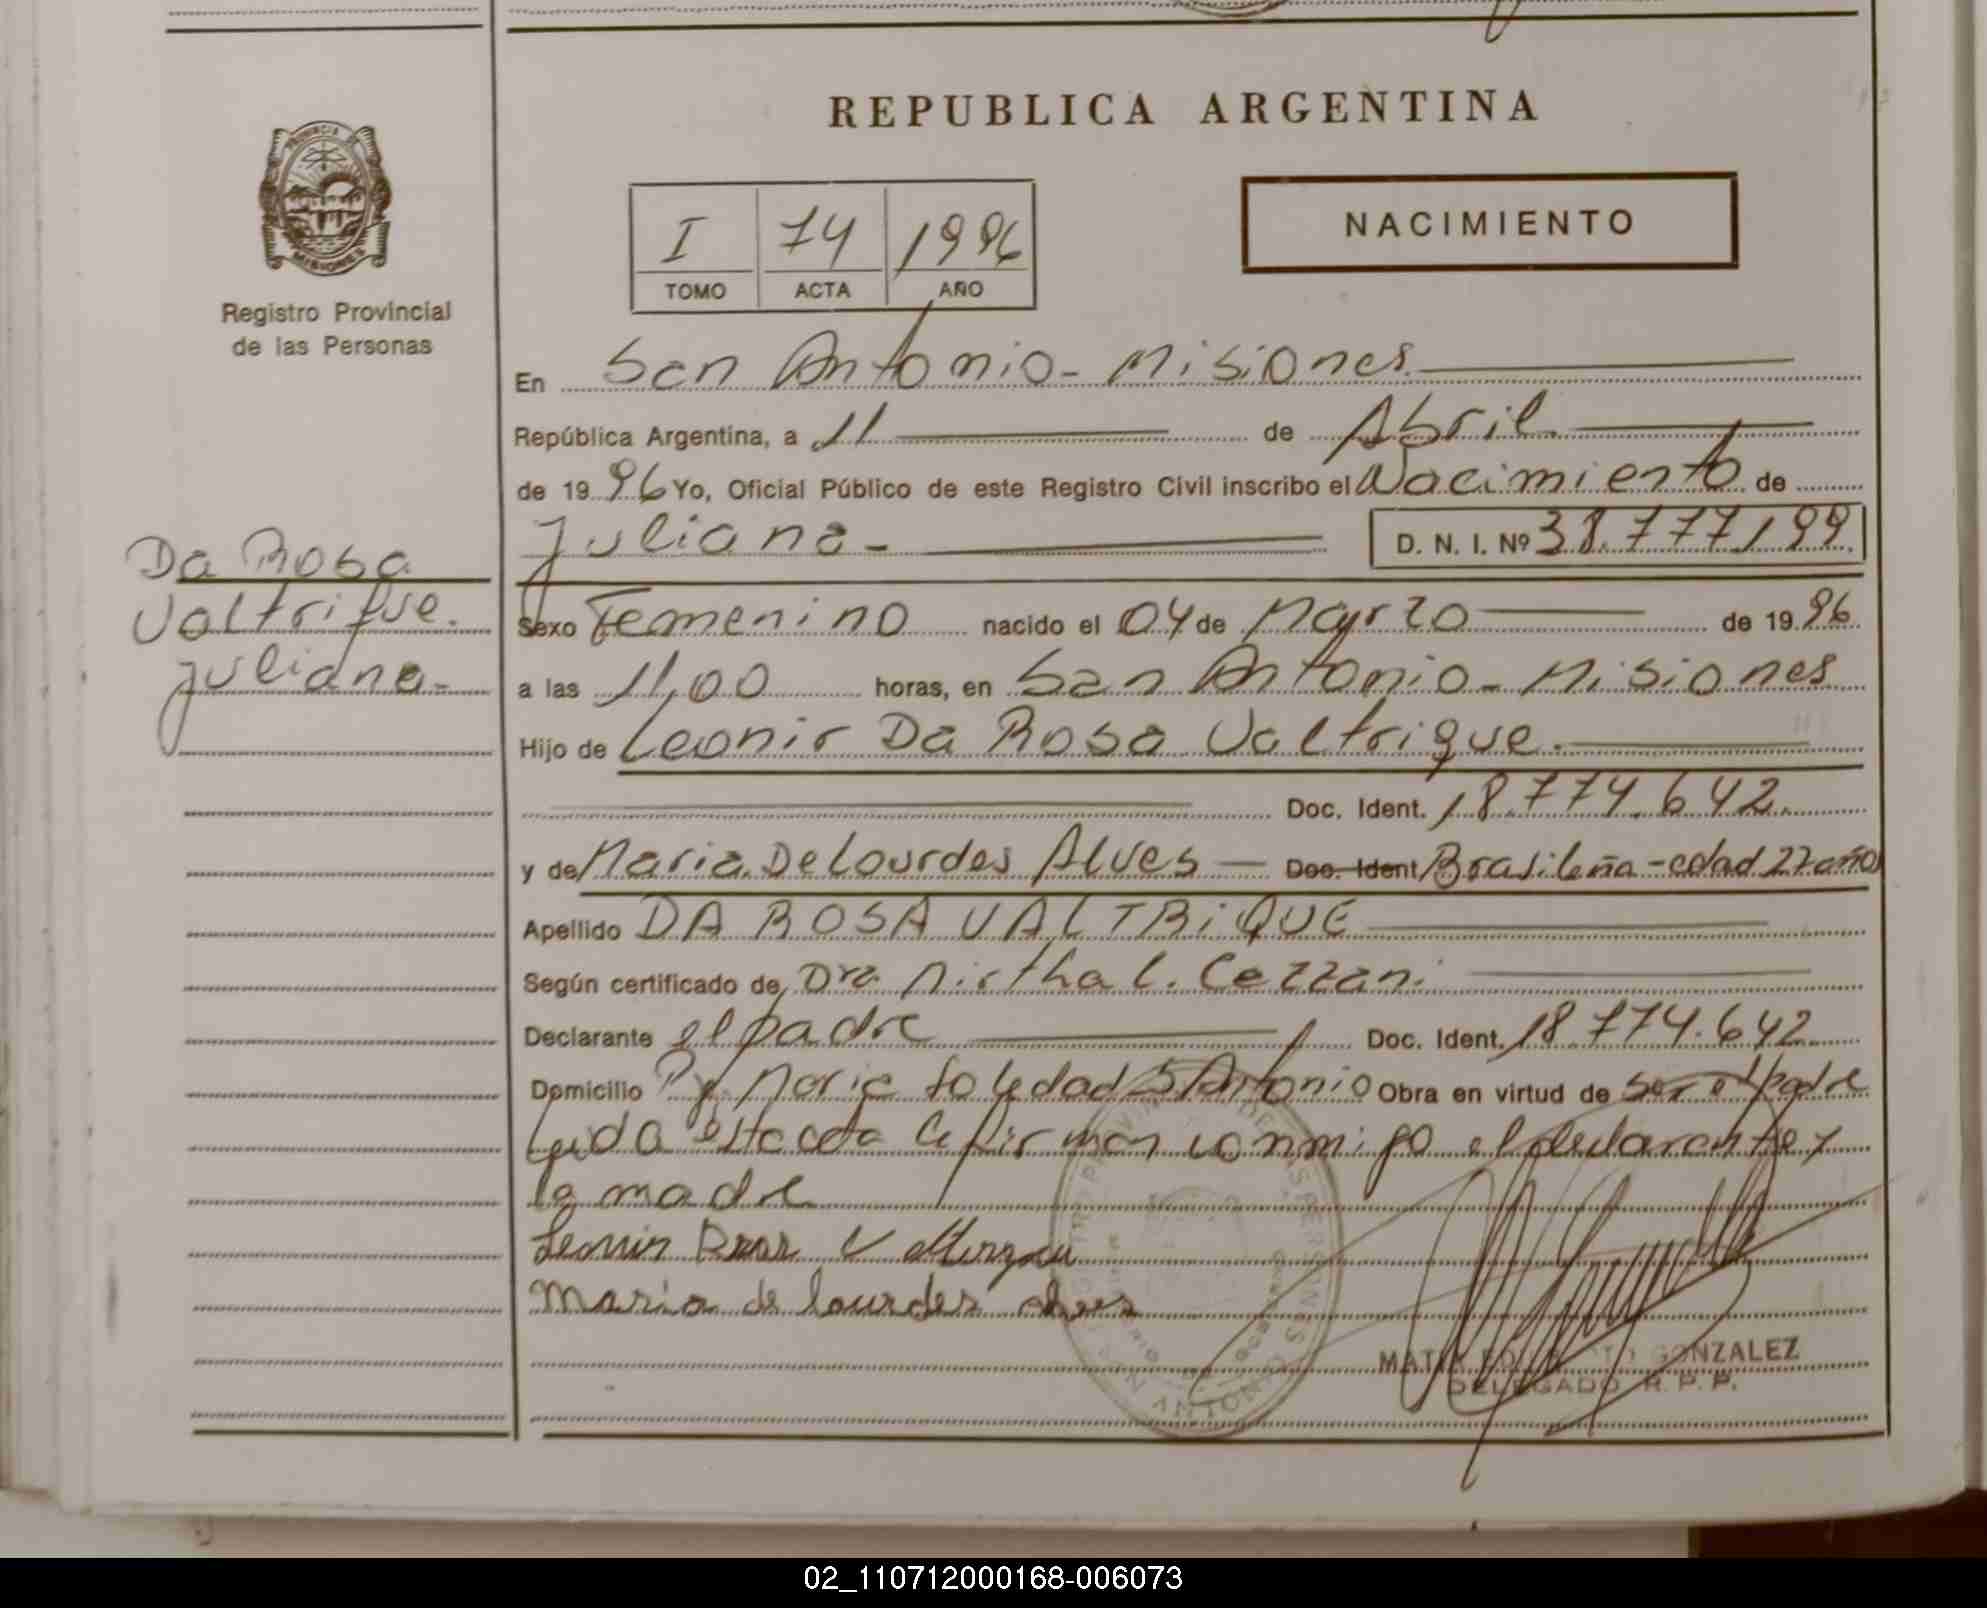 REPUBLICA ARGENTINA
PROVINCIA DE
MISIONES
Registro Provincial
de las Personas
I 74 1996
TOMO ACTA AÑO
NACIMIENTO
En San Antonio - Misiones
República Argentina, a 11 de Abril
de 1996 Yo, Oficial Público de este Registro Civil inscribo el Nacimiento de
Juliana - D. N. I. Nº 38.777.199
Da Rosa
Valtrique.
Juliana -
Sexo Femenino nacido el 04 de Marzo de 1996
a las 11,00 horas, en San Antonio - Misiones
Hijo de Leonir Da Rosa Valtrique.
Doc. Ident. 18.774.642
y de Maria De Lourdes Alves - Doc. Ident Brasileña - edad 27 años
Apellido DA ROSA VALTRIQUE
Según certificado de Dra. Mirtha L. Cezzani
Declarante el padre Doc. Ident. 18.774.642
Domicilio Maria Soledad S. Antonio Obra en virtud de ser el padre
Leida esta acta la firman conmigo el declarante y
la madre
Leonir
Maria de lourdes alves
GONZALEZ
DELEGADO R. P. P.
02_110712000168-006073